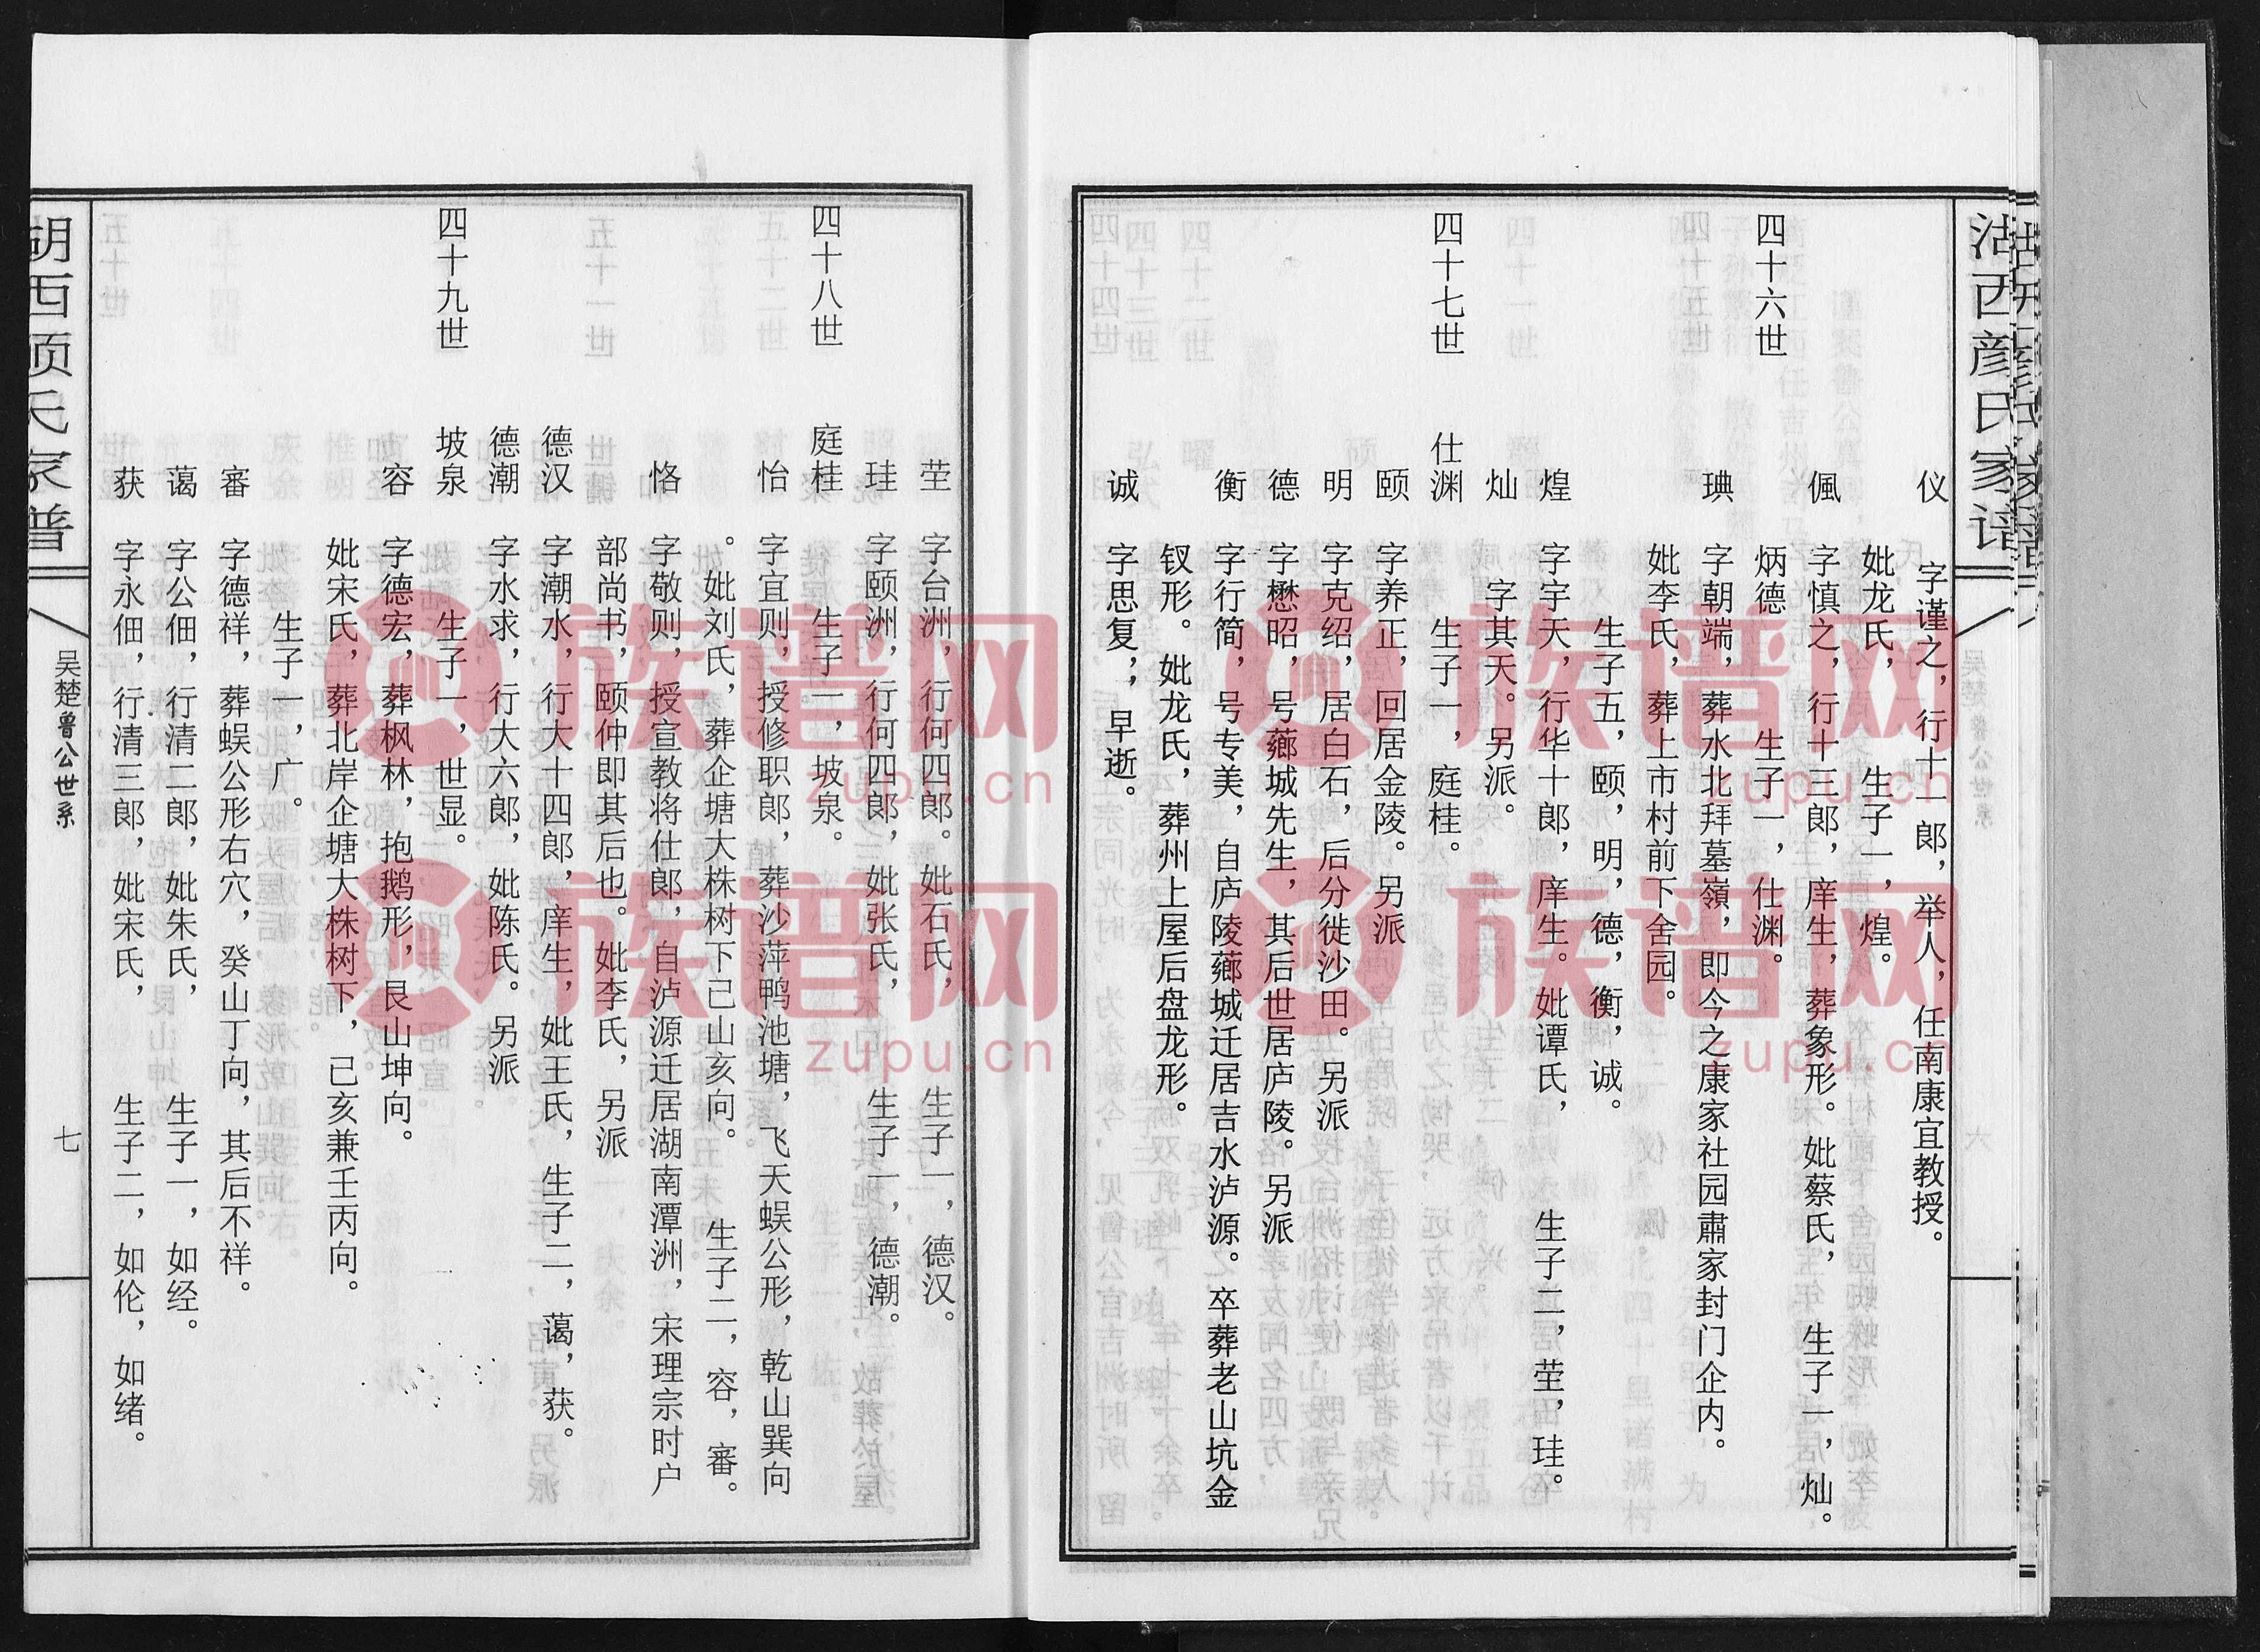 仪 字谨之，行十一郎，举人，任南康宜教授。
妣龙氏， 生子一，煌。
佩 字慎之，行十三郎，庠生，葬象形。妣蔡氏， 生子一，灿。
四十六世 炳德 生子一，仕渊。
琠 字朝端，葬水北拜墓嶺，即今之康家社园肅家封门企内。
妣李氏，葬上市村前下舍园。
生子五，颐，明，德，衡，诚。
煌 字宇天，行华十郎，庠生。妣谭氏， 生子二，莹，珪。
灿 字其天。另派。
四十七世 仕渊 生子一，庭桂。
颐 字养正，回居金陵。另派
明 字克绍，居白石，后分徙沙田。另派
德 字懋昭，号薌城先生，其后世居庐陵。另派
衡 字行简，号专美，自庐陵薌城迁居吉水泸源。卒葬老山坑金
钗形。妣龙氏，葬州上屋后盘龙形。
诚 字思复，早逝。
莹 字台洲，行何四郎。妣石氏， 生子一，德汉。
珪 字颐洲，行何四郎，妣张氏， 生子一，德潮。
四十八世 庭桂 生子一，坡泉。
怡 字宜则，授修职郎，葬沙萍鸭池塘，飞天蜈公形，乾山巽向
。妣刘氏，葬企塘大株树下己山亥向。 生子二，容，審。
恪 字敬则，授宣教将仕郎，自泸源迁居湖南潭洲，宋理宗时户
部尚书，颐仲即其后也。妣李氏，另派
德汉 字潮水，行大十四郎，庠生，妣王氏，生子二，蔼，获。
德潮 字水求，行大六郎，妣陈氏。另派
四十九世 坡泉 生子一，世显。
容 字德宏，葬枫林，抱鹅形，艮山坤向。
妣宋氏，葬北岸企塘大株树下，己亥兼壬丙向。
生子一，广。
審 字德祥，葬蜈公形右穴，癸山丁向，其后不祥。
蔼 字公佃，行清二郎，妣朱氏， 生子一，如经。
获 字永佃，行清三郎，妣宋氏， 生子二，如伦，如绪。
吴楚鲁公世系
七
族谱网
zupu.cn
族谱网
zupu.cn
族谱网
zupu.cn
族谱网
zupu.cn